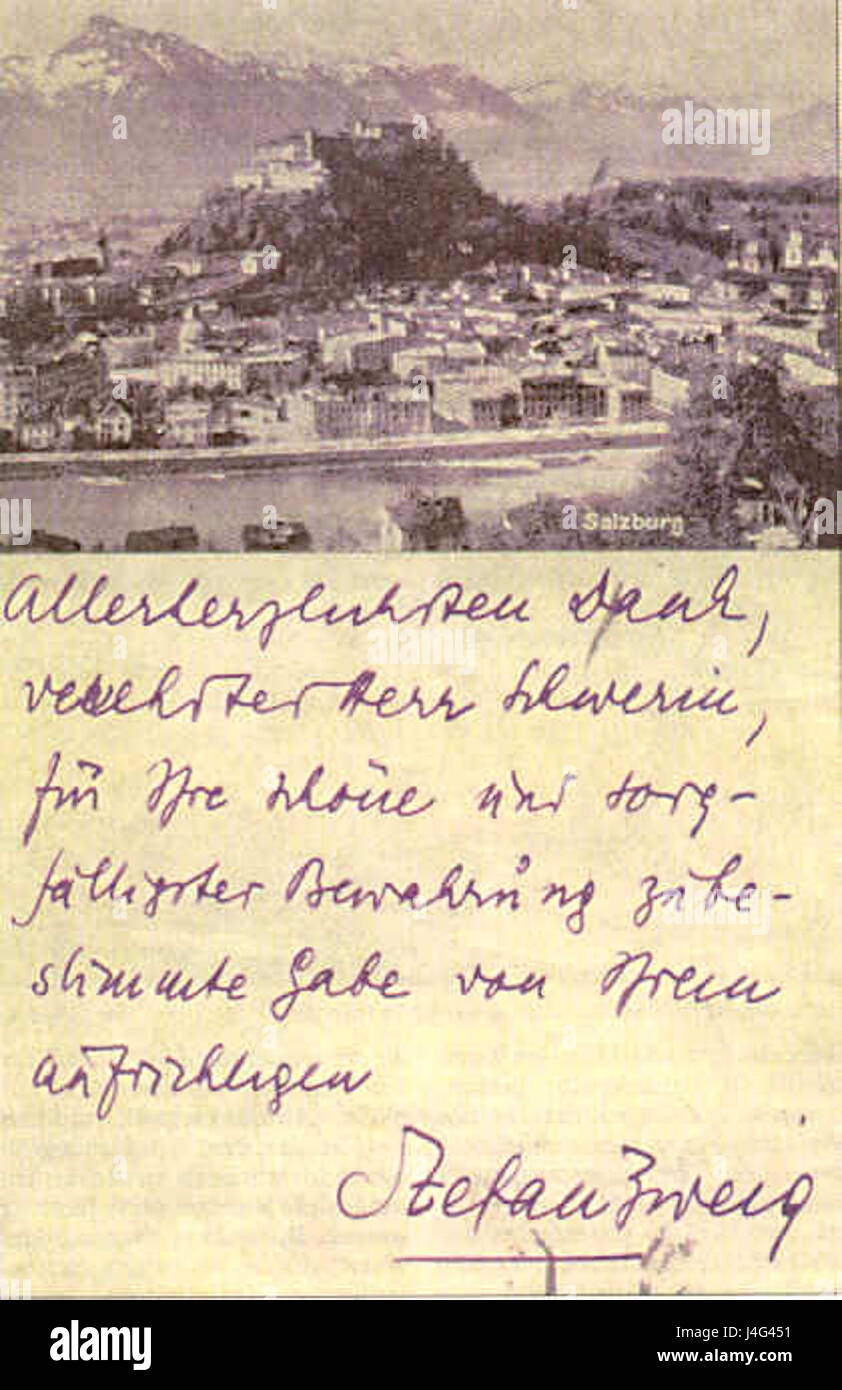 Salzburg
Allerherzlichsten Dank,
verehrter Herr Schwerin,
für Ihre schöne und sorg-
fältigster Bewahrung zube-
stimmte Gabe von Ihrem
aufrichtigen
Stefan Zweig
a alamy stock photo
J4G451
www.alamy.com